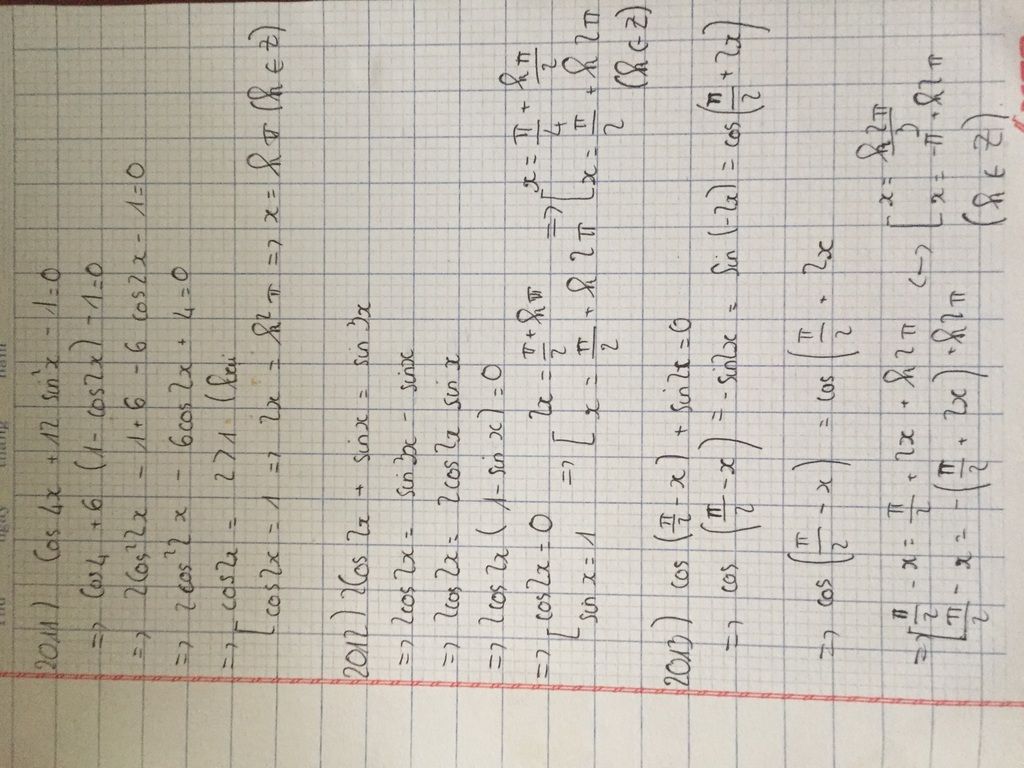 2011) Cos 4x + 12 sin²x - 1 = 0
=> Cos4 + 6 (1 - cos2x) - 1 = 0
=> 2cos²2x - 1 + 6 - 6 cos2x - 1 = 0
=> 2cos²2x - 6cos2x + 4 = 0
=> [ cos2x = 2 > 1 (loại
cos2x = 1 => 2x = k2π => x = kπ (k ∈ Z)
2012) 2cos 2x + sinx = sin 3x
=> 2cos2x = sin3x - sinx
=> 2cos2x = 2cos2x sinx
=> 2cos2x (1 - sinx) = 0
=> [ cos2x = 0 => [ 2x = π/2 + kπ => [ x = π/4 + kπ/2
sinx = 1 x = π/2 + k2π x = π/2 + k2π
(k ∈ Z)
2013) cos (π/2 - x) + sin2x = 0
=> cos (π/2 - x) = - sin2x = sin (-2x) = cos (π/2 + 2x)
=> cos (π/2 - x) = cos (π/2 + 2x
=> [ π/2 - x = π/2 + 2x + k2π <-> [ x = k2π/3
π/2 - x = - (π/2 + 2x) + k2π x = -π + k2π
(k ∈ Z)